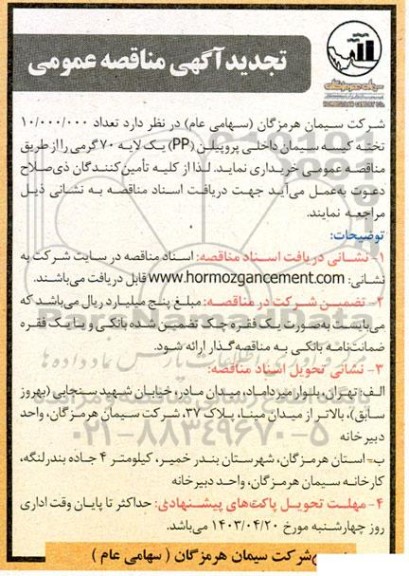 تجدید آگهی مناقصه عمومی
شرکت سیمان هرمزگان (سهامی عام) در نظر دارد تعداد ۱۰/۰۰۰/۰۰۰
تخته کیسه سیمان داخلی پروپیلن (PP) یک لایه ۷۰ گرمی را از طریق
مناقصه عمومی خریداری نماید. لذا از کلیه تأمین‌کنندگان ذی‌صلاح
دعوت به‌عمل می‌آید جهت دریافت اسناد مناقصه به نشانی ذیل
مراجعه نمایند.
توضیحات:
۱- نشانی دریافت اسناد مناقصه: اسناد مناقصه در سایت شرکت به
نشانی: www.hormozgancement.com قابل دریافت می‌باشند.
۲- تضمین شرکت در مناقصه: مبلغ پنج میلیارد ریال می‌باشد که
می‌بایست به‌صورت یک فقره چک تضمین شده بانکی و یا یک فقره
ضمانت‌نامه بانکی به مناقصه‌گذار ارائه شود.
۳- نشانی تحویل اسناد مناقصه:
الف- تهران، بلوار میرداماد، میدان مادر، خیابان شهید سنجابی (بهروز
سابق)، بالاتر از میدان مینا، پلاک ۳۷، شرکت سیمان هرمزگان، واحد
دبیرخانه
ب- استان هرمزگان، شهرستان بندر خمیر، کیلومتر ۴ جاده بندرلنگه،
کارخانه سیمان هرمزگان، واحد دبیرخانه
۴- مهلت تحویل پاکت‌های پیشنهادی: حداکثر تا پایان وقت اداری
روز چهارشنبه مورخ ۱۴۰۳/۰۴/۲۰ می‌باشد.
شرکت سیمان هرمزگان ( سهامی عام )
ParsNamadData
۰۲۱-۸۸۳۴۹۶۷۰-۵